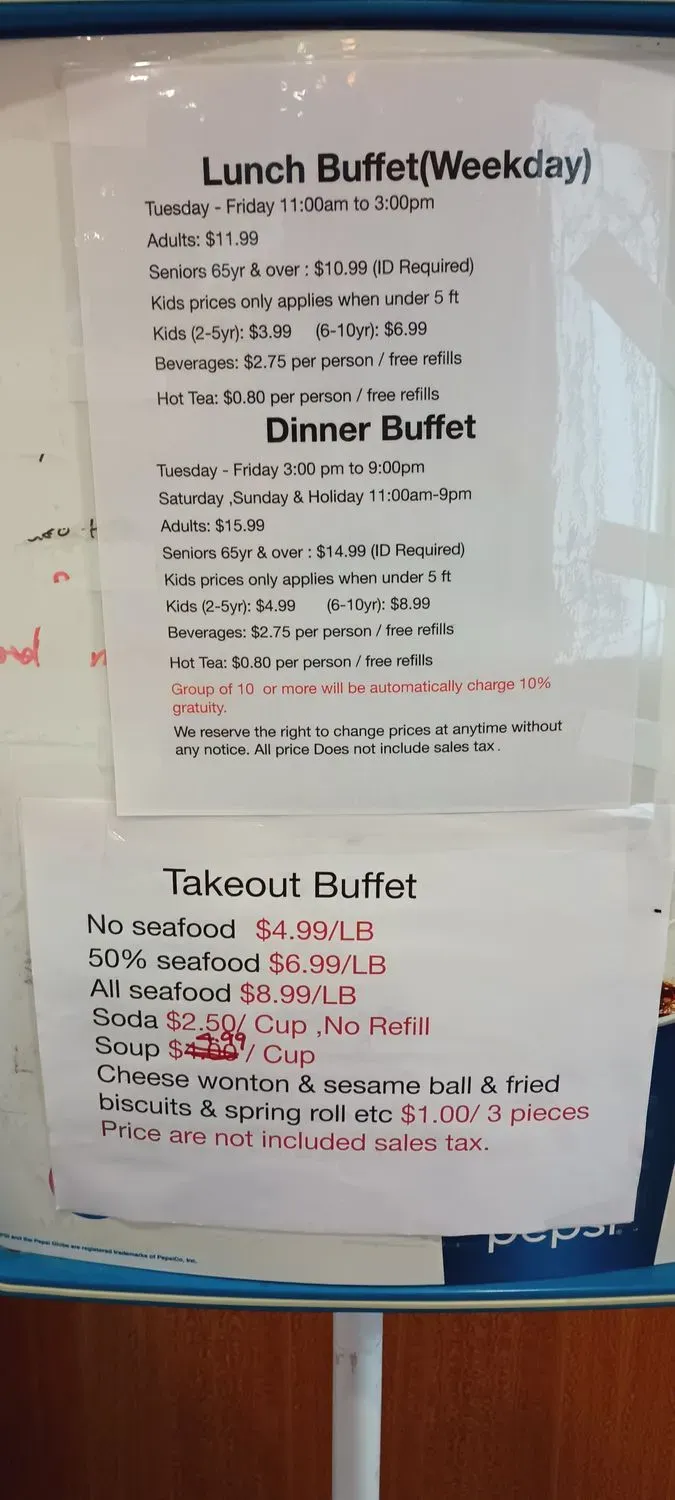 Lunch Buffet(Weekday)
Tuesday - Friday 11:00am to 3:00pm
Adults: $11.99
Seniors 65yr & over : $10.99 (ID Required)
Kids prices only applies when under 5 ft
Kids (2-5yr): $3.99 (6-10yr): $6.99
Beverages: $2.75 per person / free refills
Hot Tea: $0.80 per person / free refills
Dinner Buffet
Tuesday - Friday 3:00 pm to 9:00pm
Saturday ,Sunday & Holiday 11:00am-9pm
Adults: $15.99
Seniors 65yr & over : $14.99 (ID Required)
Kids prices only applies when under 5 ft
Kids (2-5yr): $4.99 (6-10yr): $8.99
Beverages: $2.75 per person / free refills
Hot Tea: $0.80 per person / free refills
Group of 10 or more will be automatically charge 10%
gratuity.
We reserve the right to change prices at anytime without
any notice. All price Does not include sales tax.
Takeout Buffet
No seafood $4.99/LB
50% seafood $6.99/LB
All seafood $8.99/LB
Soda $2.50/ Cup ,No Refill
Soup $ / Cup
Cheese wonton & sesame ball & fried
biscuits & spring roll etc $1.00/ 3 pieces
Price are not included sales tax.
pepsi
and the Pepsi Globe are registered trademarks of PepsiCo, Inc.